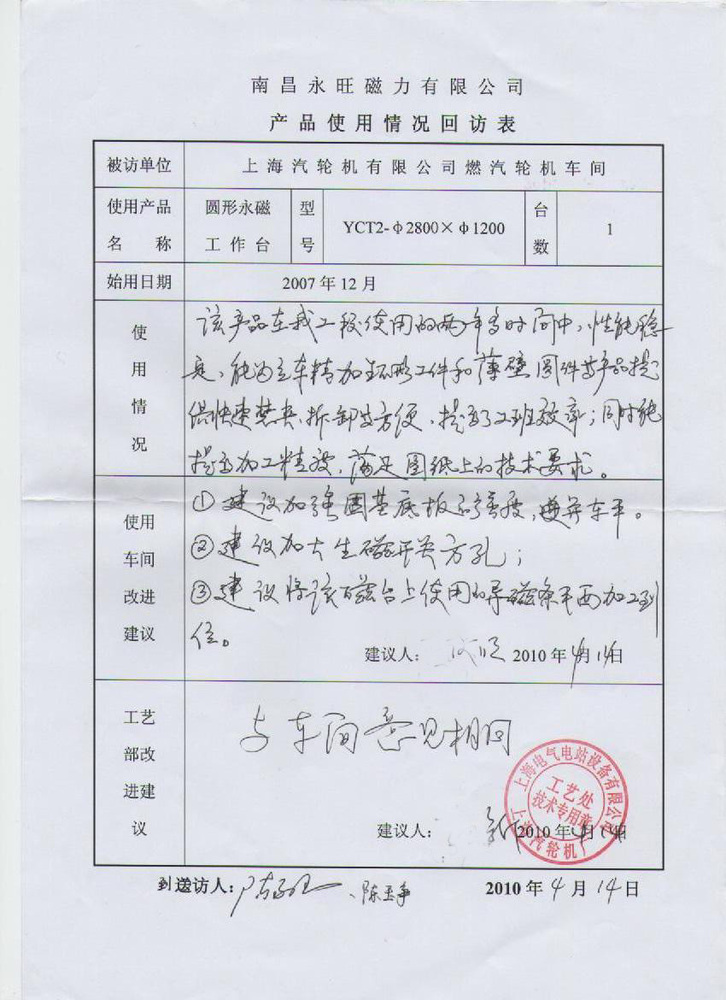 南昌永旺磁力有限公司
产品使用情况回访表
被访单位 上海汽轮机有限公司燃汽轮机车间
使用产品名称 圆形永磁工作台 型号 YCT2-φ2800×φ1200 台数 1
始用日期 2007年12月
使用情况
该产品在我工段使用的两年多时间中,性能稳
定,能为立车精加工环形工件和薄壁圆件等产品提
供快速装夹、拆卸方便,提高了工班效率;同时能
提高加工精度,满足图纸上的技术要求。
使用车间改进建议
①建议加强圆基底板的强度,车平。
②建议加大生磁开关方孔;
③建议将该磁台上使用的导磁条平面加工到
位。
建议人: 2010年4月14日
工艺部改进建议
与车间意见相同
建议人: 2010年4月14日
上海电气电站设备有限公司
工艺处
技术专用章
上海汽轮机厂
到送访人: 2010年4月14日